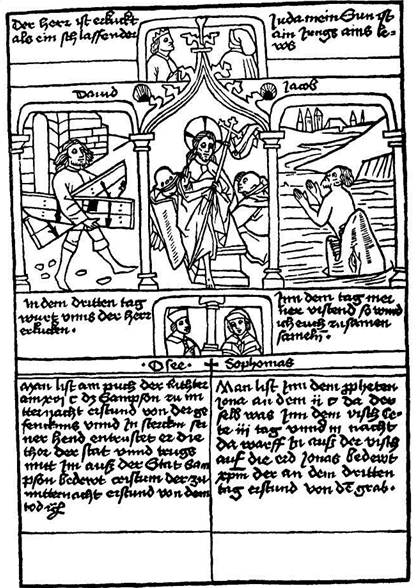 Der Herr ist erkuckt
als ein schlaffender
Juda mein Sun ist
ain Jungs ains le-
wos
Dauid
Jacob
in dem dritten tag
wurt vnns der herr
erkucken.
Inn dem tag mei-
ner vistend so wird
ich euch zusamen
sameln
Osee. Sophomas
Man list am puch der Richter
am xvi c dz Sampson zu mi-
tternacht erstund von der ge-
fencknus vnnd In stercken sei-
ner hend entrustet er die
thor der stat vnnd trugs
mitt Im auß der Stat Sam-
pson bedewt cristum der zu
mitternacht erstund von dem
tod
Man list Inn dem propheten
Jona an dem ii c da der
selb was Inn dem visch bc-
te iii tag vnnd iii nacht
da warff In auß der visch
auf die erd Jonas bedewt
xpm der an dem dritten
tag erstund von dē grab.